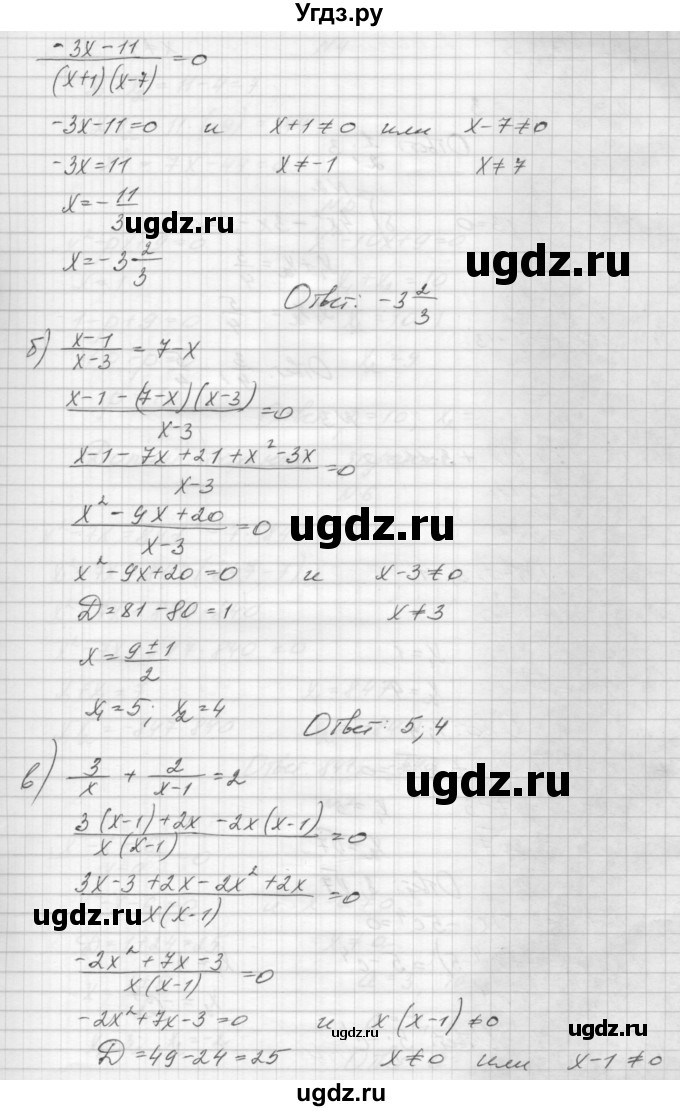 Угдз.ру
(-3x-11)/((x+1)(x-7)) = 0
-3x-11=0 и x+1≠0 или x-7≠0
-3x=11 x≠-1 x≠7
x=-11/3
ugdz.ru
ugdz.ru
x=-3 2/3
Ответ: -3 2/3
б) (x-1)/(x-3) = 7-x
(x-1-(7-x)(x-3))/(x-3) = 0
(x-1-7x+21+x²-3x)/(x-3) = 0
(x²-9x+20)/(x-3) = 0
ugdz.ru
x²-9x+20=0 и x-3≠0
D=81-80=1 x≠3
x=(9±1)/2
x₁=5; x₂=4
Ответ: 5; 4
в) 3/x + 2/(x-1) = 2
ugdz.ru
(3(x-1)+2x-2x(x-1))/(x(x-1)) = 0
(3x-3+2x-2x²+2x)/(x(x-1)) = 0
ugdz.ru
(-2x²+7x-3)/(x(x-1)) = 0
-2x²+7x-3=0 и x(x-1)≠0
ugdz.ru
ugdz.ru
D=49-24=25 x≠0 или x-1≠0
ugdz.ru